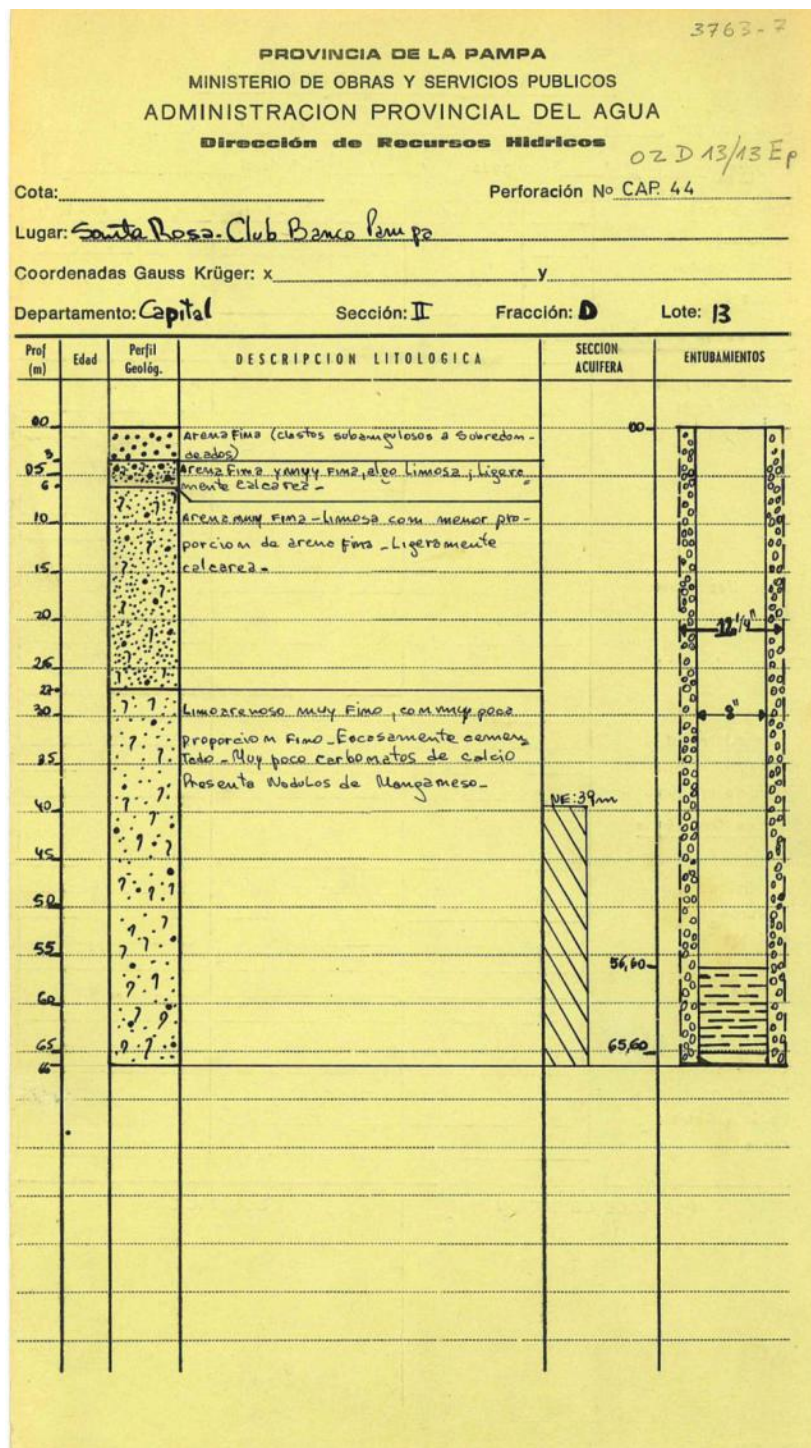 3763-7
PROVINCIA DE LA PAMPA
MINISTERIO DE OBRAS Y SERVICIOS PUBLICOS
ADMINISTRACION PROVINCIAL DEL AGUA
Dirección de Recursos Hidricos
02 D 13/13 Ep
Cota: Perforación Nº CAP. 44
Lugar: Santa Rosa - Club Banco Pampa
Coordenadas Gauss Krüger: x y
Departamento: Capital Sección: II Fracción: D Lote: 13
Prof (m) Edad Perfil Geológ. DESCRIPCION LITOLOGICA SECCION ACUIFERA ENTUBAMIENTOS
00 00
Arena Fina (clastos subangulosos a Subredon-
3 deados)
05 Arena Fina y muy Fina, algo Limosa; Ligera
6 mente calcarea -
10 Arena muy Fina - Limosa con menor pro-
porcion de arena fina - Ligeramente
15 calcarea -
20 12 1/4"
25
27
30 Limo arenoso muy Fino, con muy poca 8"
proporcion Fino - Escasamente cemen
35 tado - Muy poco carbonatos de calcio
Presenta Nodulos de Manganeso -
40 NE: 39m
45
50
55 56,60
60
65 65,60
66